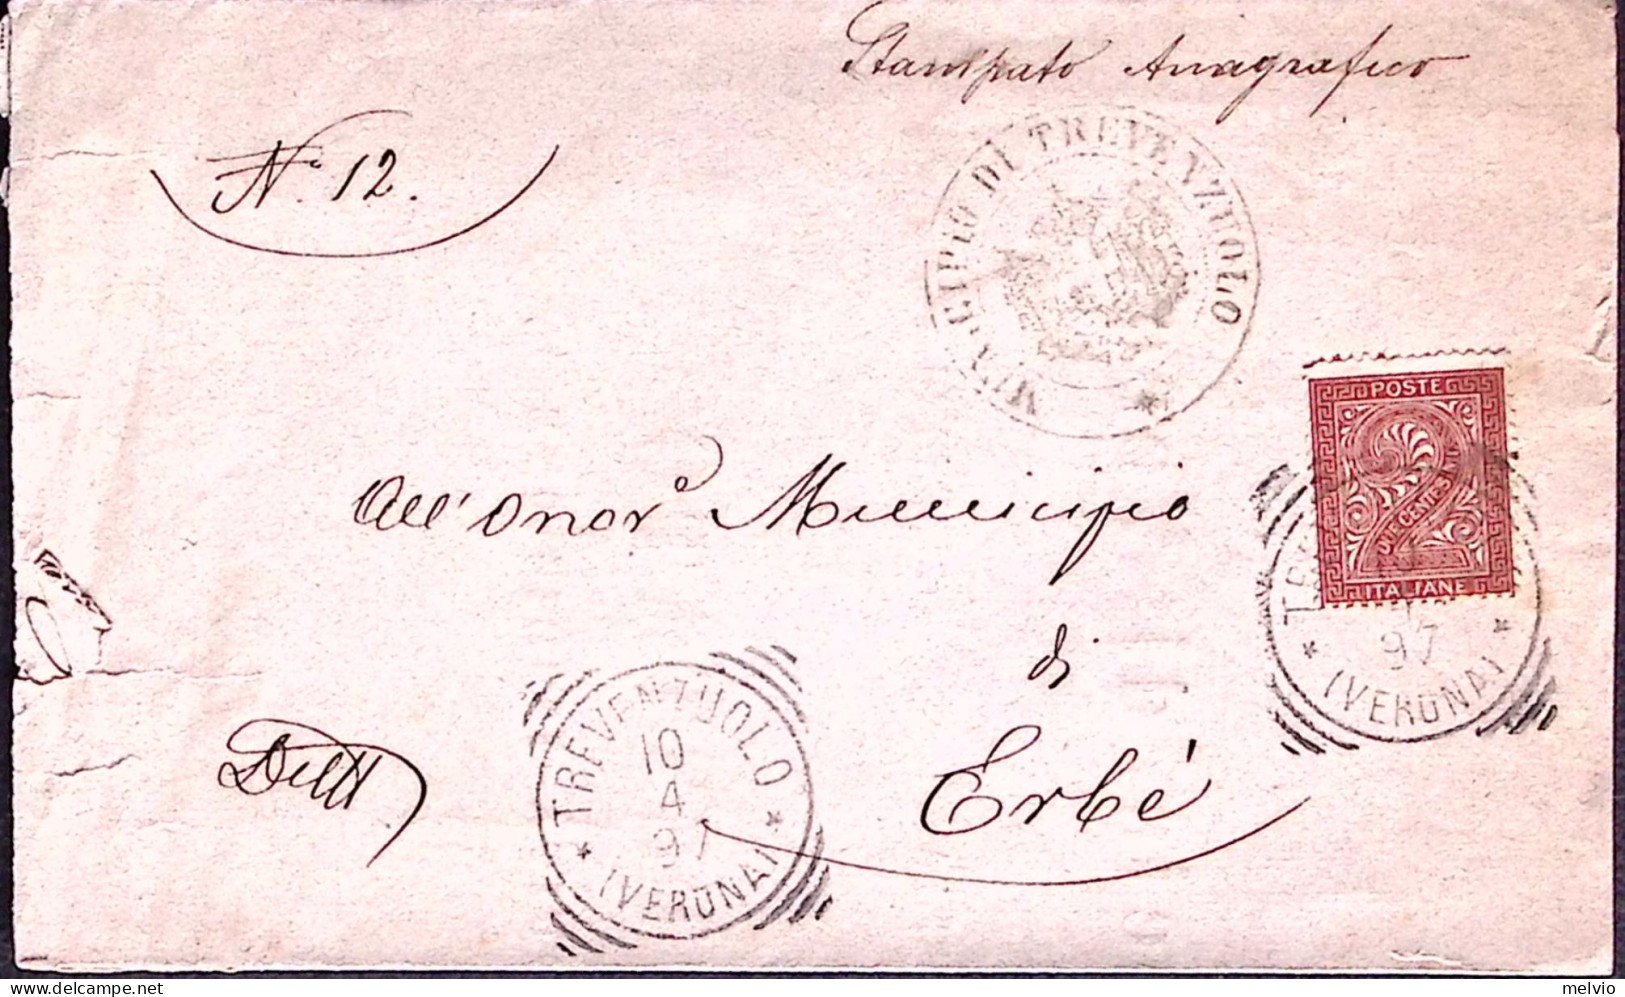 Stampato Anagrafico
N.° 12.
MUNICIPIO DI TREVENZUOLO *
POSTE
2
DUE CENTESIMI
ITALIANE
All' Onor.e Municipio
di
Erbé
97
* (VERONA) *
TREVENZUOLO
10
4
97
* (VERONA) *
melvio